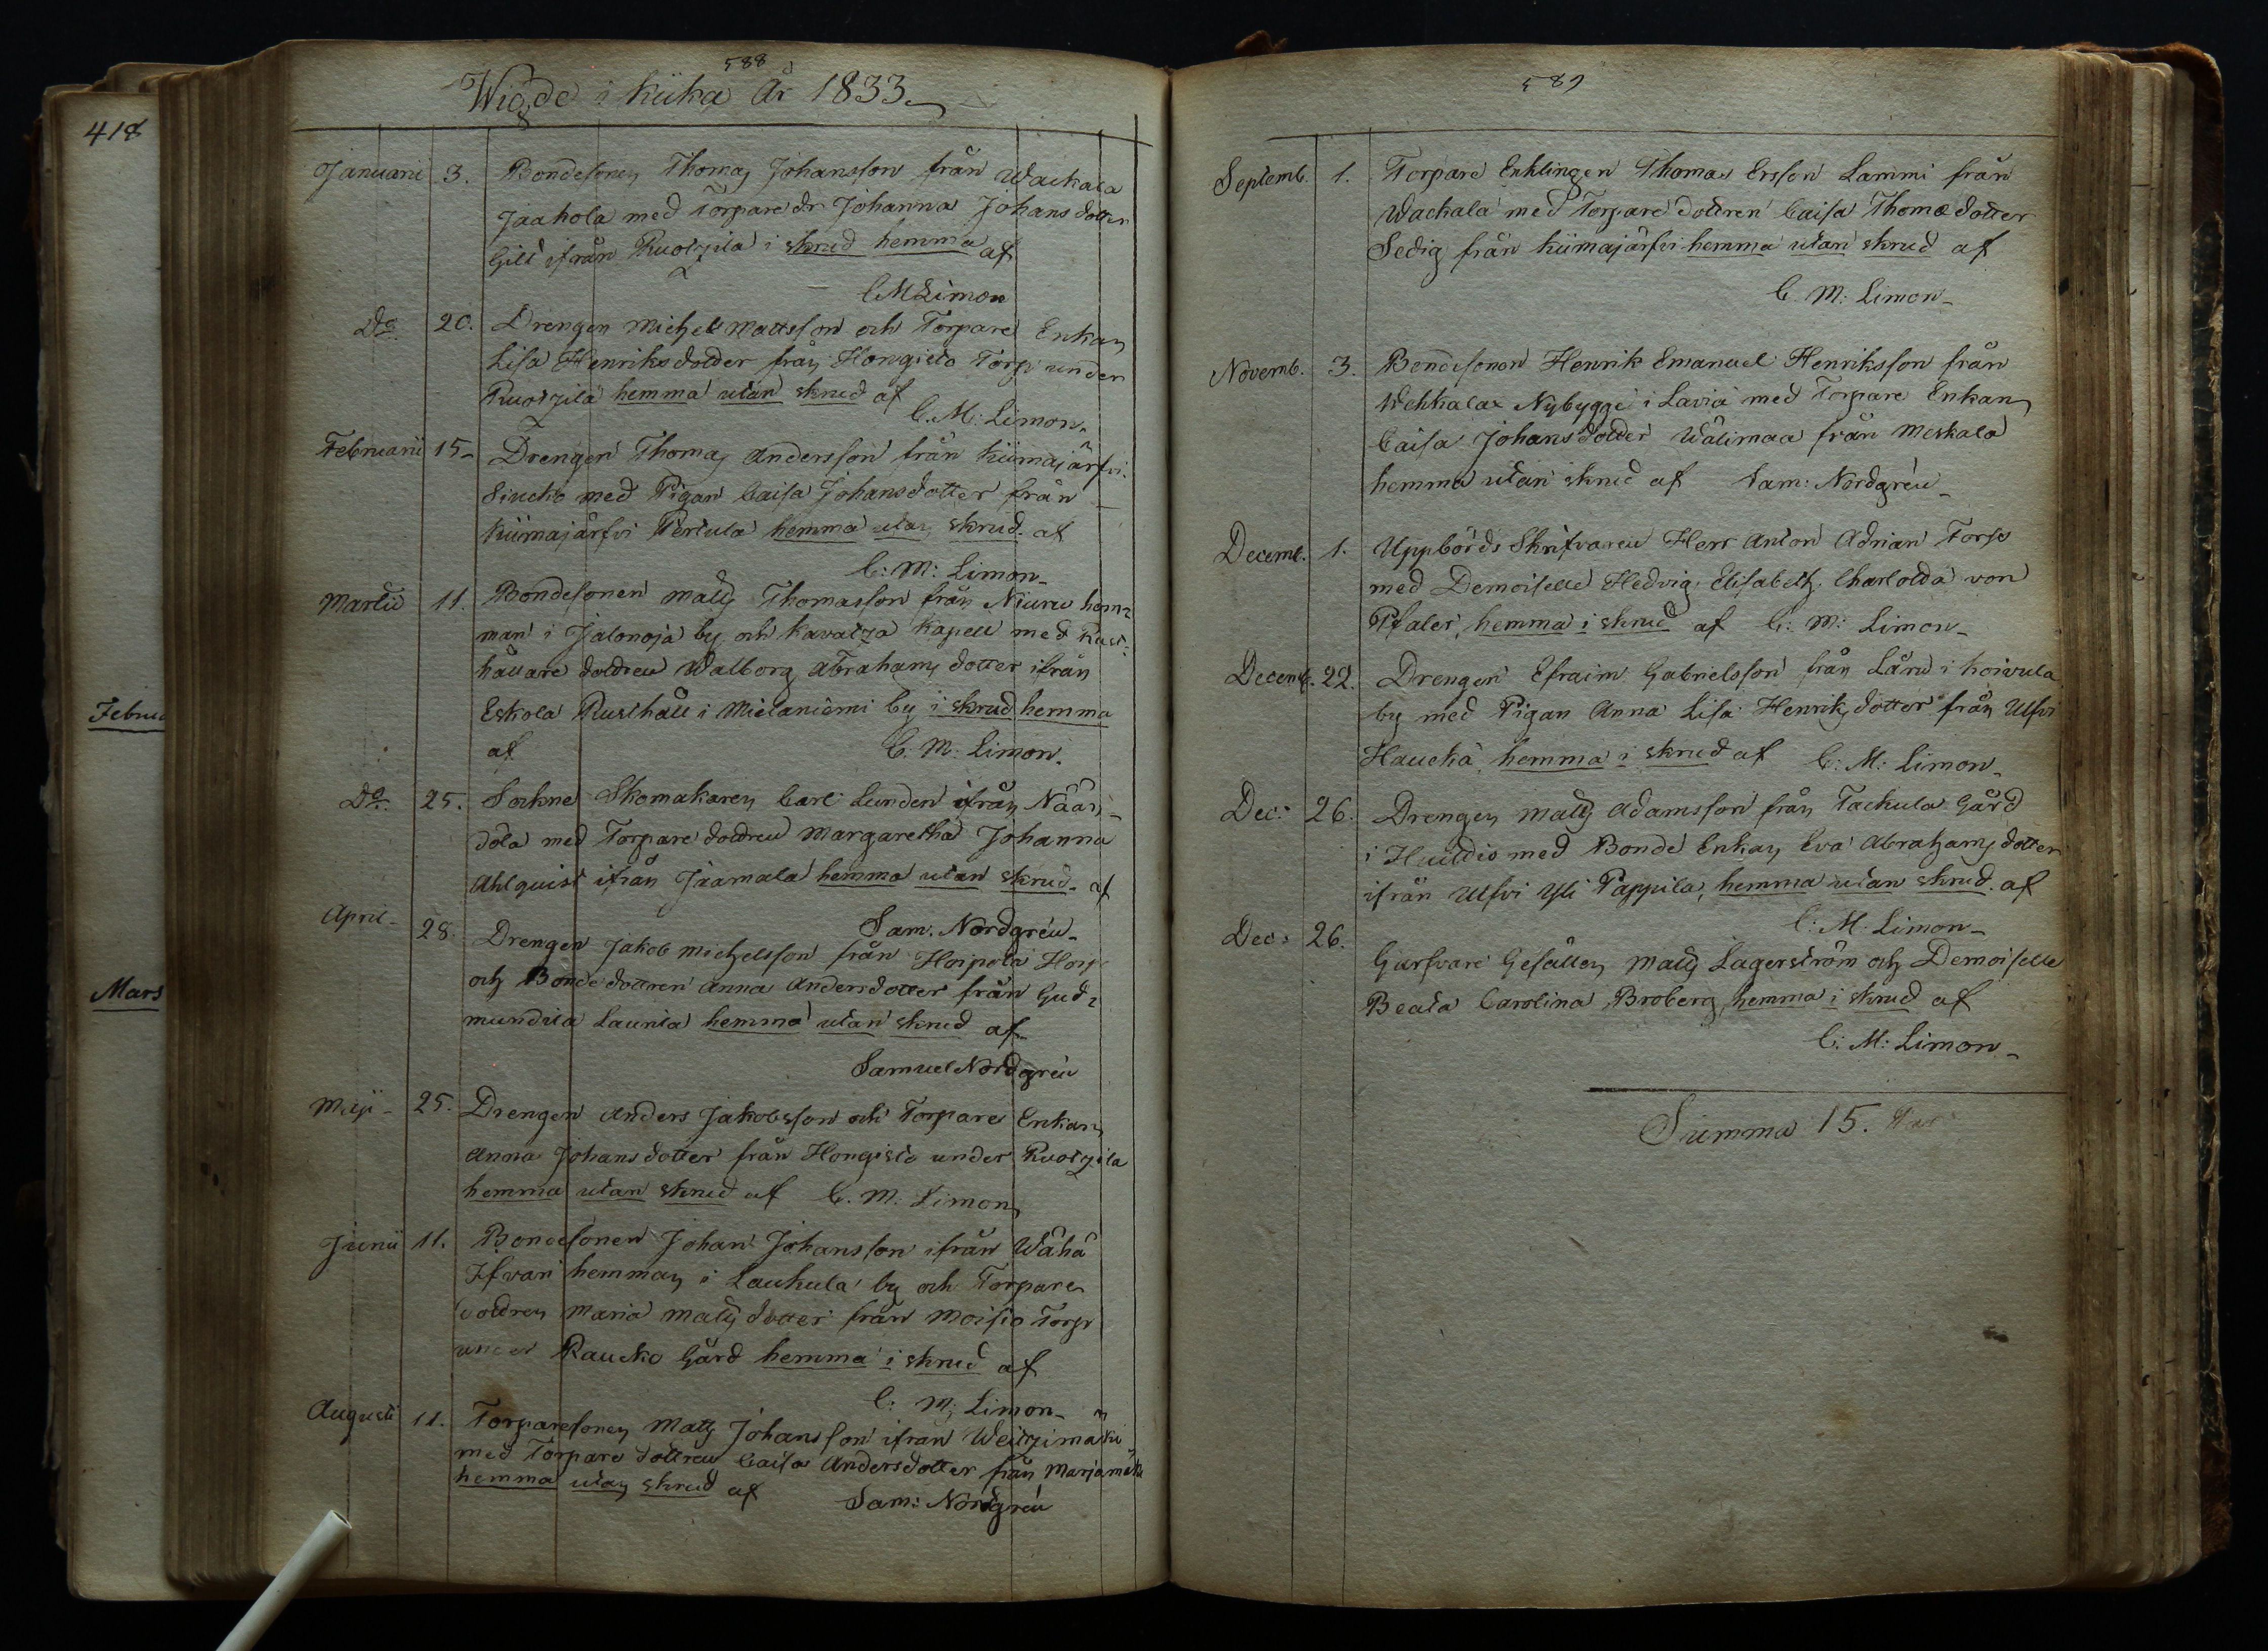 418
Februa
Mars
588
Wigde i Kiika År 1833
Januarii 3. Bondesonen Thomas Johansson från Wachala
Jaakola med Torpare dr Johanna Johansdotter
Gill ifrån Ruotzila i skrud hemma af
C M Limon
Do 20. Drengen Michel Mattsson och Torpare Enkan
Lisa Henriksdotter från Hongisto Torp under
Ruotzila hemma utan skrud af
C. M: Limon.
Februarii 15 Drengen Thomas Andersson från Kiimajärfvi
Siucko med Pigan Caisa Johansdotter från
Kiimajärfvi Pertula hemma utan skrud. af
C: M: Limon
Martii 11. Bondesonen Matts Thomasson från Niuru hem=
man i Jalonoja by och Kavatza Kapell med Rust=
hållare dottren Walborg Abrahams dotter ifrån
Eskola Rusthåll i Mielaniemi by i skrud hemma
af C. M. Limon.
Do. 25. Sockne Skomakaren Carl Lunden ifrån Nään
dola med Torpare dottren Margaretha Johanna
Ahlquist ifrån Jramala hemma utan skrud. af
Sam. Nordgrén
April 28. Drengen Jakob Michelsson från Hoipola Horp
och Bonde dottren Anna Andersdotter från Gud=
mundila Launla hemma utan skrud af
Samuel Nordgrén
Maji 25. Drengen Anders Jakobsson och Torpare Enkan
Anna Johansdotter från Hongisto under Ruotzila
hemma utan skrud af C. M. Limon
Junii 11. Bondesonen Johan Johansson ifrån Wähä
Ifvari hemman i Laukula by och Torpare
dottren Maria Mattsdotter från Moisio Torp
under Raucko Gård hemma i skrud af
C: M; Limon
Augusti 11. Torparesonen Matts Johansson ifrån Weitzimäki
med Torpare dottren Caisa Andersdotter från Marjamäki
hemma utan skrud af Sam: Nordgrén
589
Septemb. 1. Torpare Enklingen Thomas Ersson Lammi från
Wachala med Torpare dottren Caisa Thomædotter
Sedig från Kiimajärfvi hemma utan skrud af
C. M: Limon
Novemb. 3. Bondesonen Henrik Emanuel Henriksson från
Wehkalax Nybygge i Lavia med Torpare Enkan
Caisa Johansdotter Wälimaa från Meskala
hemma utan skrud af Sam: Nordgrén
Decemb. 1. Uppbörds Skrifvaren Herr Anton Adrian Forss
med Demoiselle Hedvig Elisabeth Charlotta von
Pfaler, hemma i skrud af C: M: Limon
Decemb. 22. Drengen Efraim Gabrielsson från Länd i Koivula
by med Pigan Anna Lisa Henriksdotter från Ulfvi
Haucka hemma i skrud af C: M: Limon
Dec: 26. Drengen Matts Adamsson från Tackula Gård
i Huittis med Bonde Enkan Eva Abrahamsdotter
ifrån Ulfvi Yli Pappila, hemma utan skrud. af
C: M. Limon
Dec: 26. Garfvare Gesällen Matts Lagerström och Demoiselle
Beata Carolina Broberg hemma i skrud af
C: M: Limon
Summa 15. Par